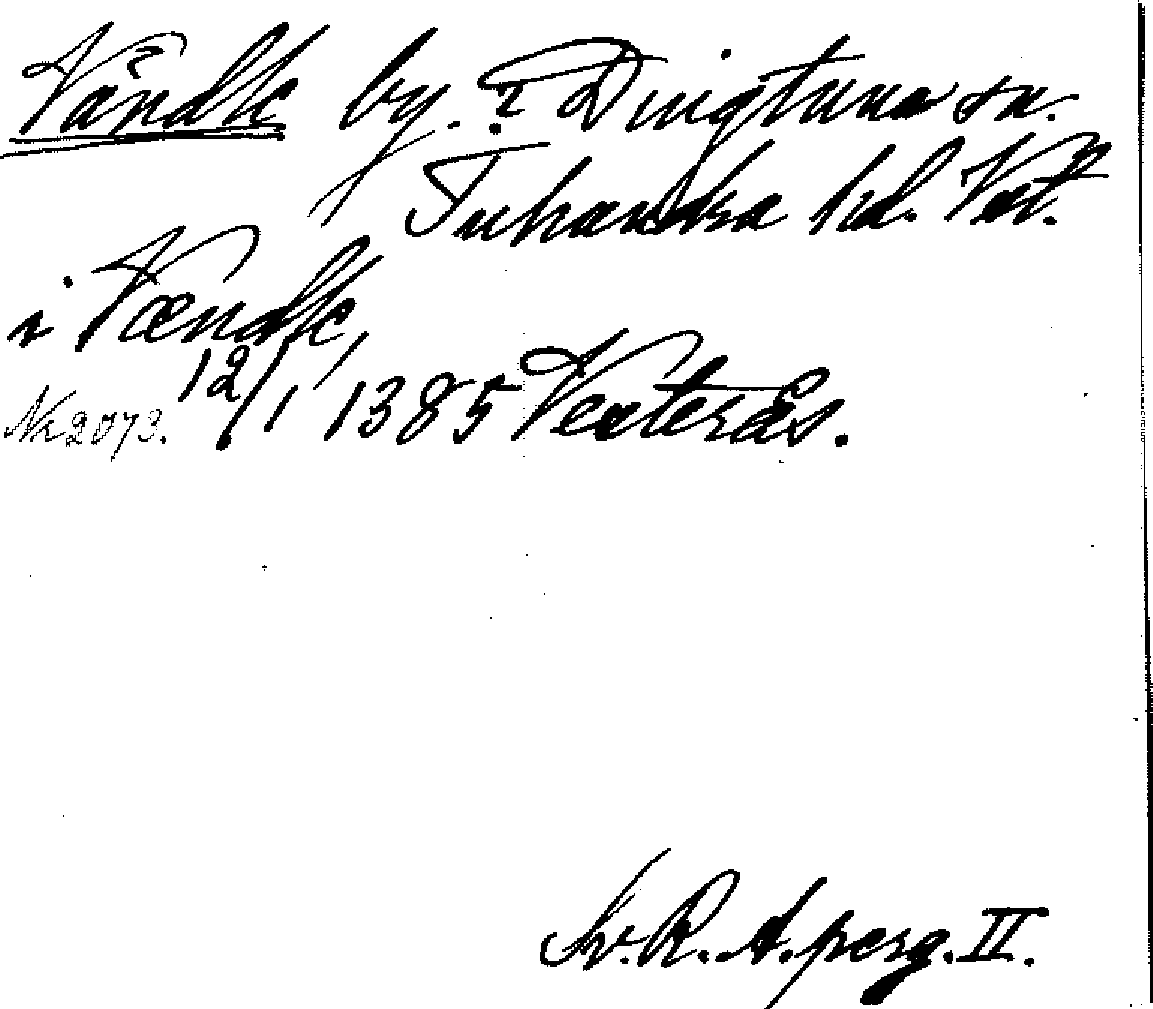 Våndle by. ? Dingtuna sn.
Tuhundra hd. Vstm.
i Vændle,
Nr 2073. 12/1 1385 Vesterås.
Sv. R. A. perg. II.